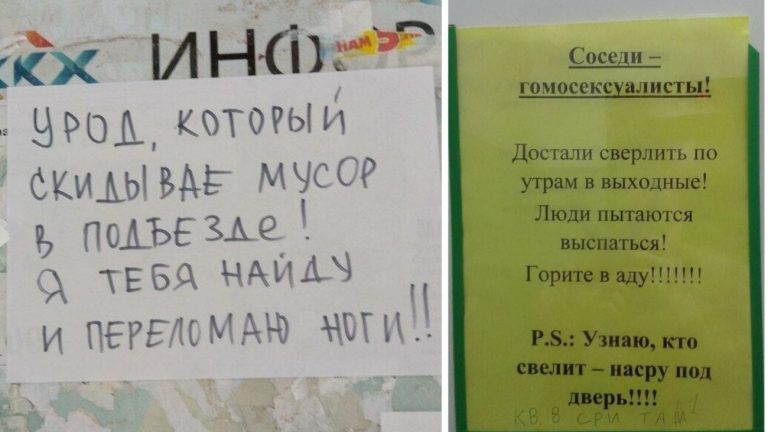 ЖКХ ИНФОР
НАМ 5
УРОД, КОТОРЫЙ
СКИДЫВАЕ МУСОР
В ПОДЪЕЗДЕ!
Я ТЕБЯ НАЙДУ
И ПЕРЕЛОМАЮ НОГИ!!
Соседи –
гомосексуалисты!
Достали сверлить по
утрам в выходные!
Люди пытаются
выспаться!
Горите в аду!!!!!!!
P.S.: Узнаю, кто
свелит – насру под
дверь!!!!
КВ. 8 СРИ ТАМ